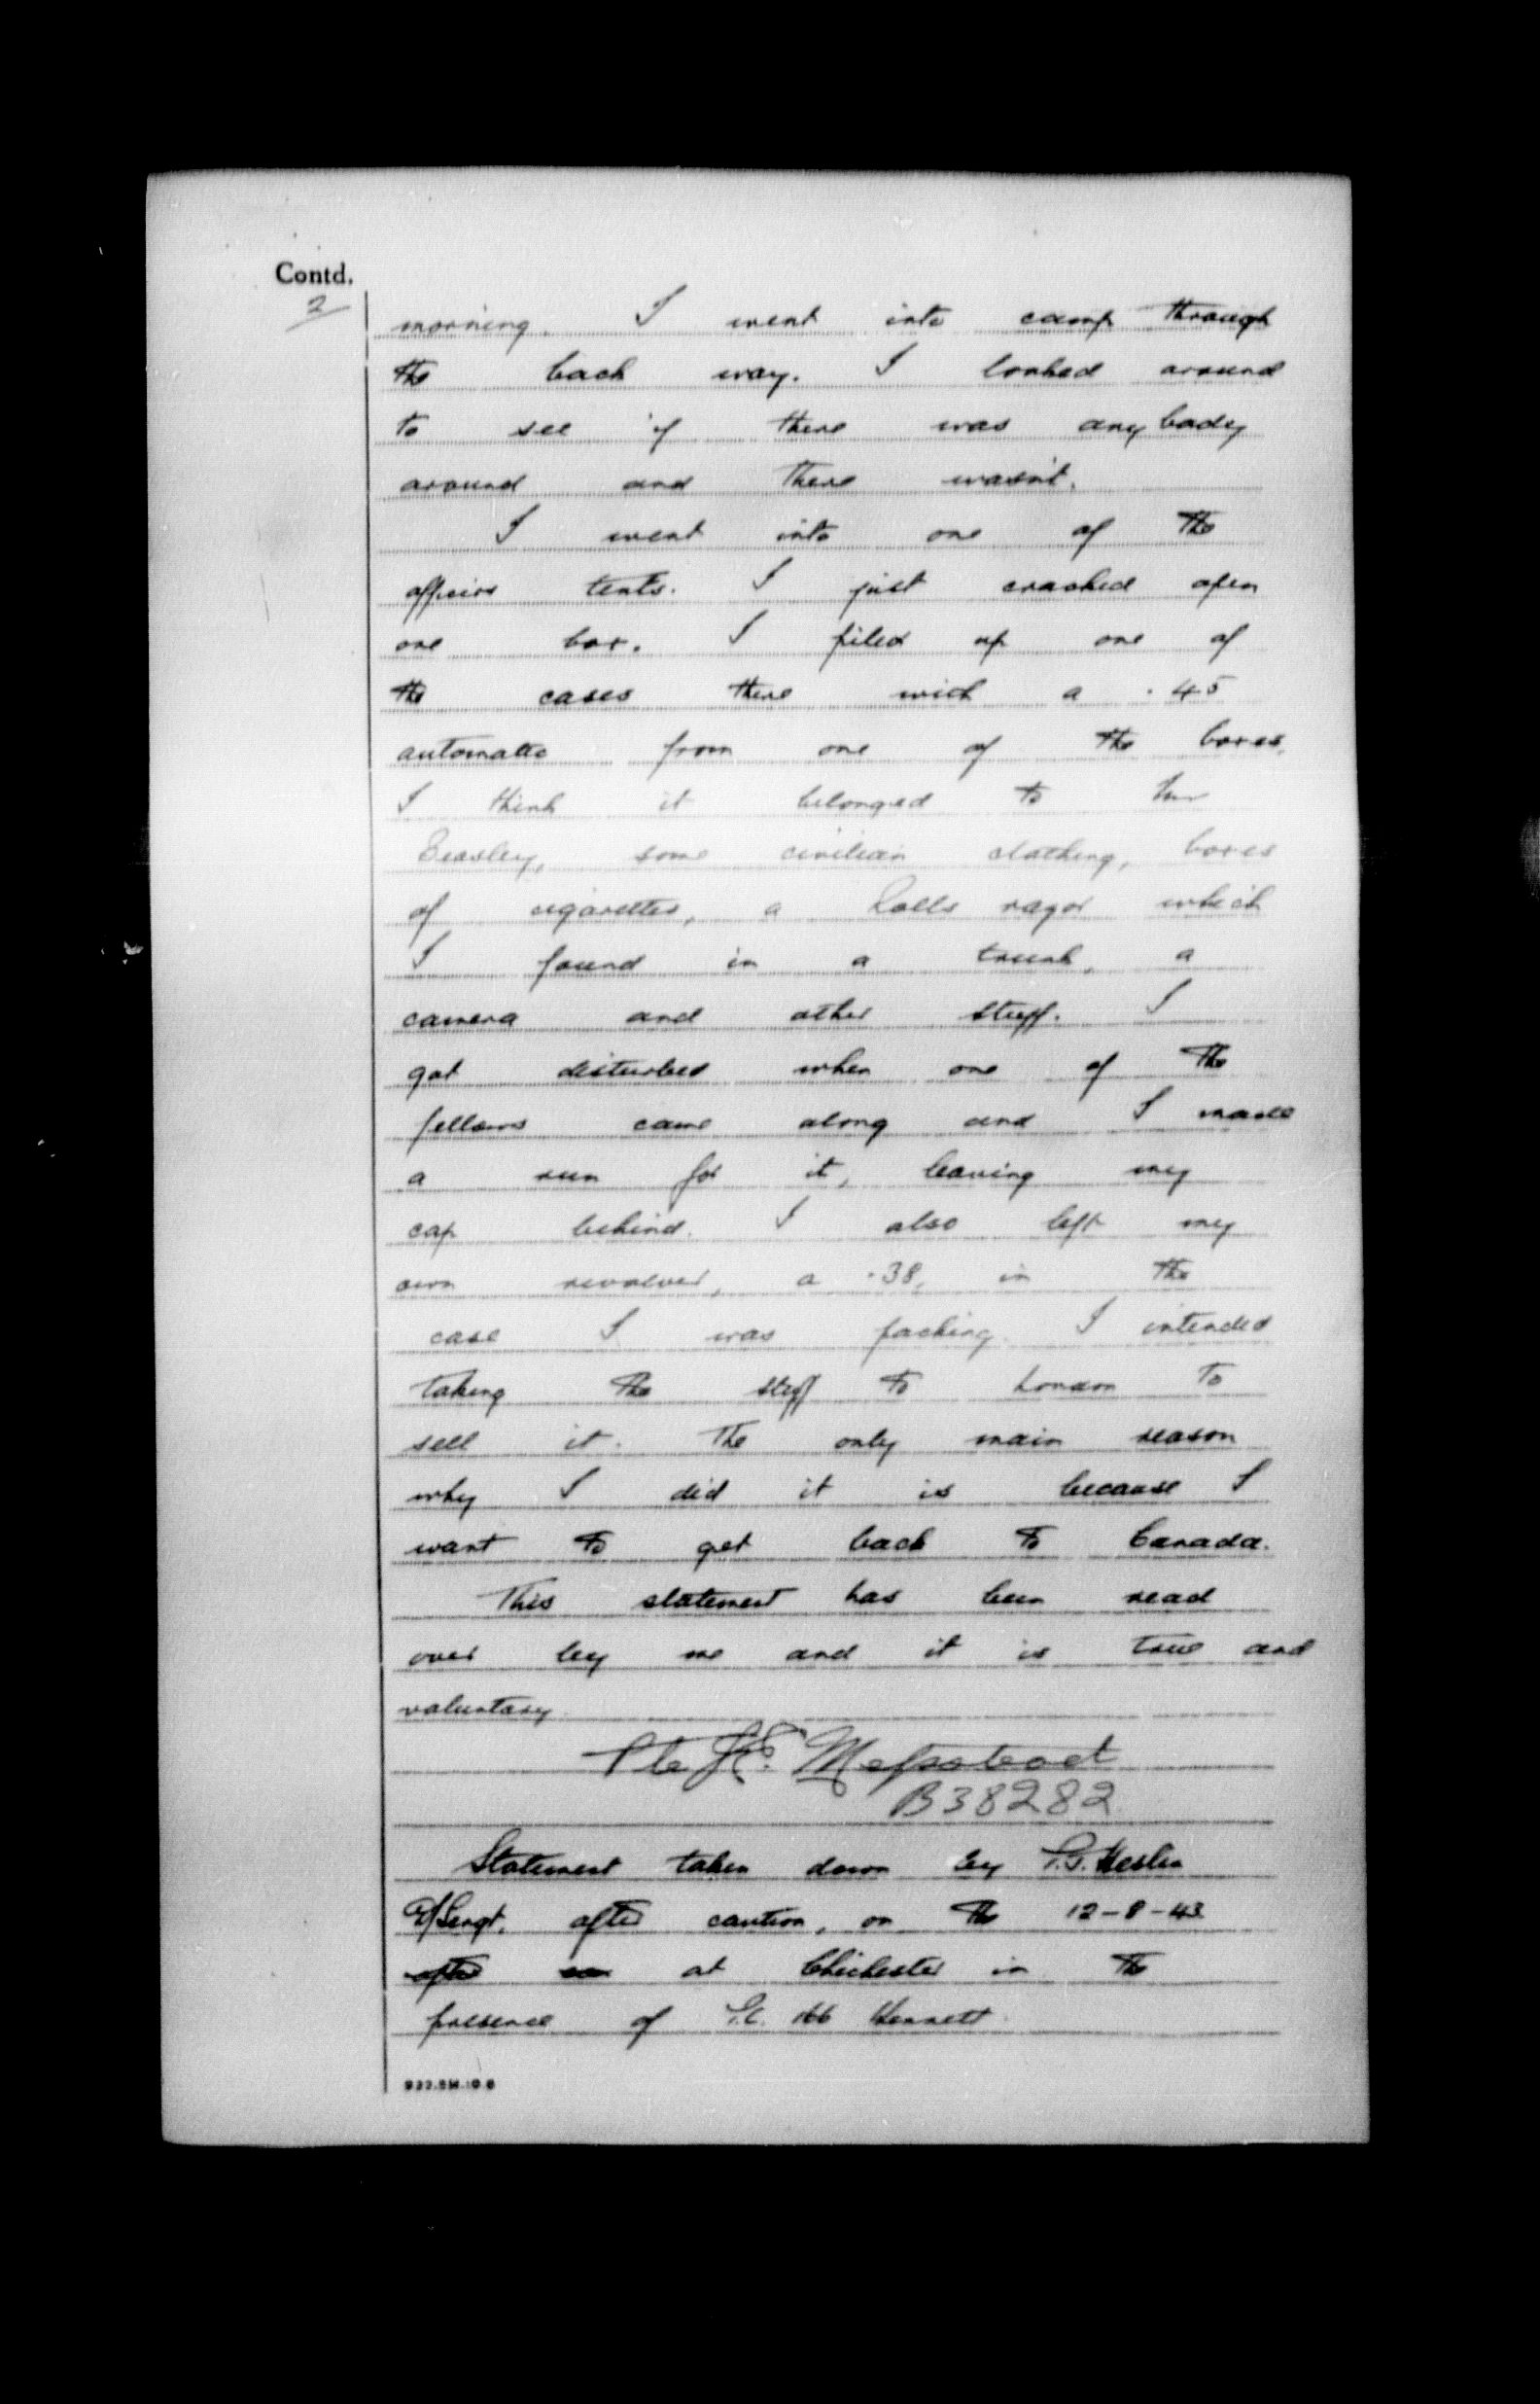 Contd.
2
morning. I went into camp through
the back way. I looked around
to see if there was anybody
around and there wasn't.
I went into one of the
officers tents. I just cracked open
one box. I piled up one of
the cases there with a .45
automatic from one of the boxes,
I think it belonged to
Beasley, some civilian clothing, boxes
of cigarettes, a Rolls razor which
I found in a trunk, a
camera and other stuff. I
got disturbed when one of the
fellows came along and I made
a run for it, leaving my
cap behind. I also left my
own revolver, a .38, in the
case I was packing. I intended
taking the stuff to London to
sell it. The only main reason
why I did it is because I
want to get back to Canada.
This statement has been read
over by me and it is true and
voluntary.
Pte
B38282
Statement taken down by
D/Sergt. after caution, on the 12-8-43
after at Chichester in the
presence of P.C. 166 Kennett.